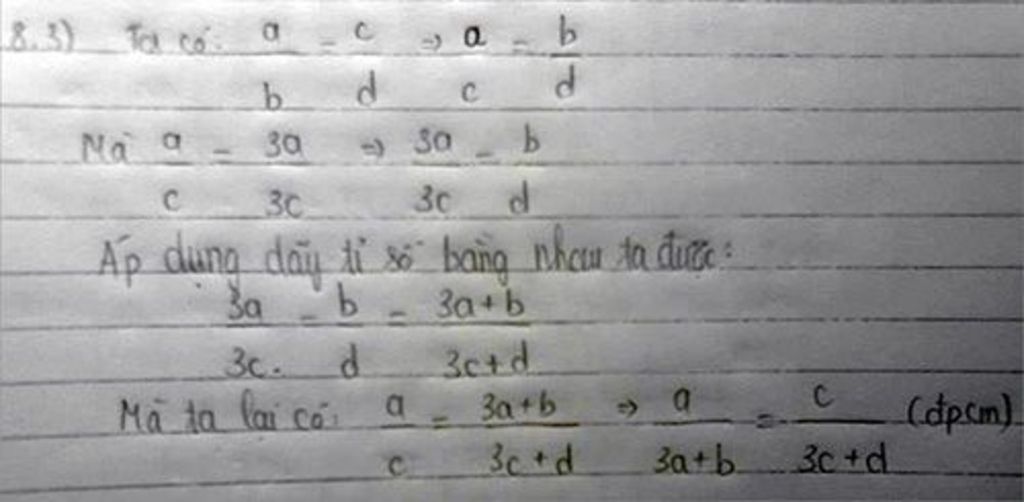 8.3) Ta có: a/b = c/d ⇒ a/c = b/d
Mà a/c = 3a/3c ⇒ 3a/3c = b/d
Áp dụng dãy tỉ số bằng nhau ta được:
3a/3c = b/d = 3a+b/3c+d
Mà ta lại có: a/c = 3a+b/3c+d ⇒ a/3a+b = c/3c+d (đpcm)